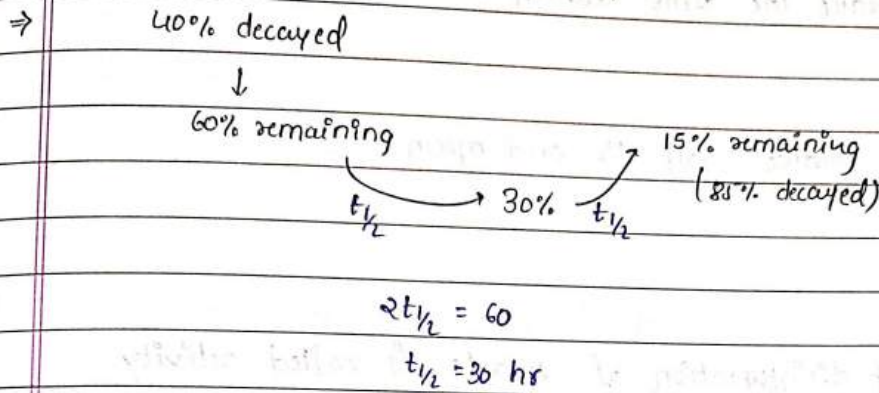 ⇒ 40% decayed
↓
60% remaining
t1/2 → 30% t1/2
15% remaining
(85% decayed)
2t1/2 = 60
t1/2 = 30 hr